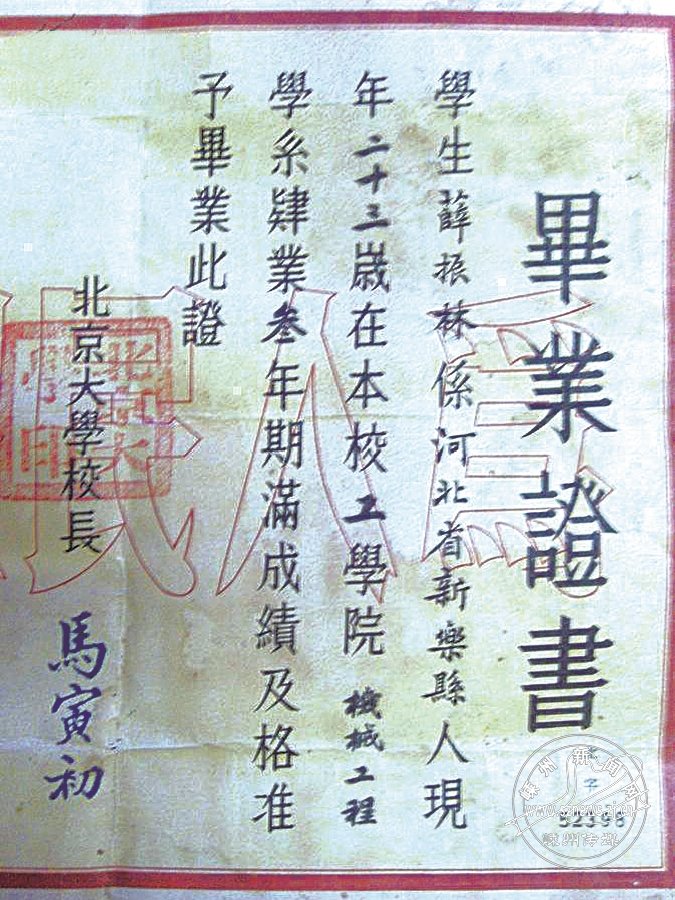 畢業證書
學生薛振林係河北省新樂縣人現
年二十三嵗在本校工學院機械工程
學系肄業叁年期滿成績及格准
予畢業此證
北京大學校長 馬寅初
字
52398
嵊州新闻网
嵊州传媒